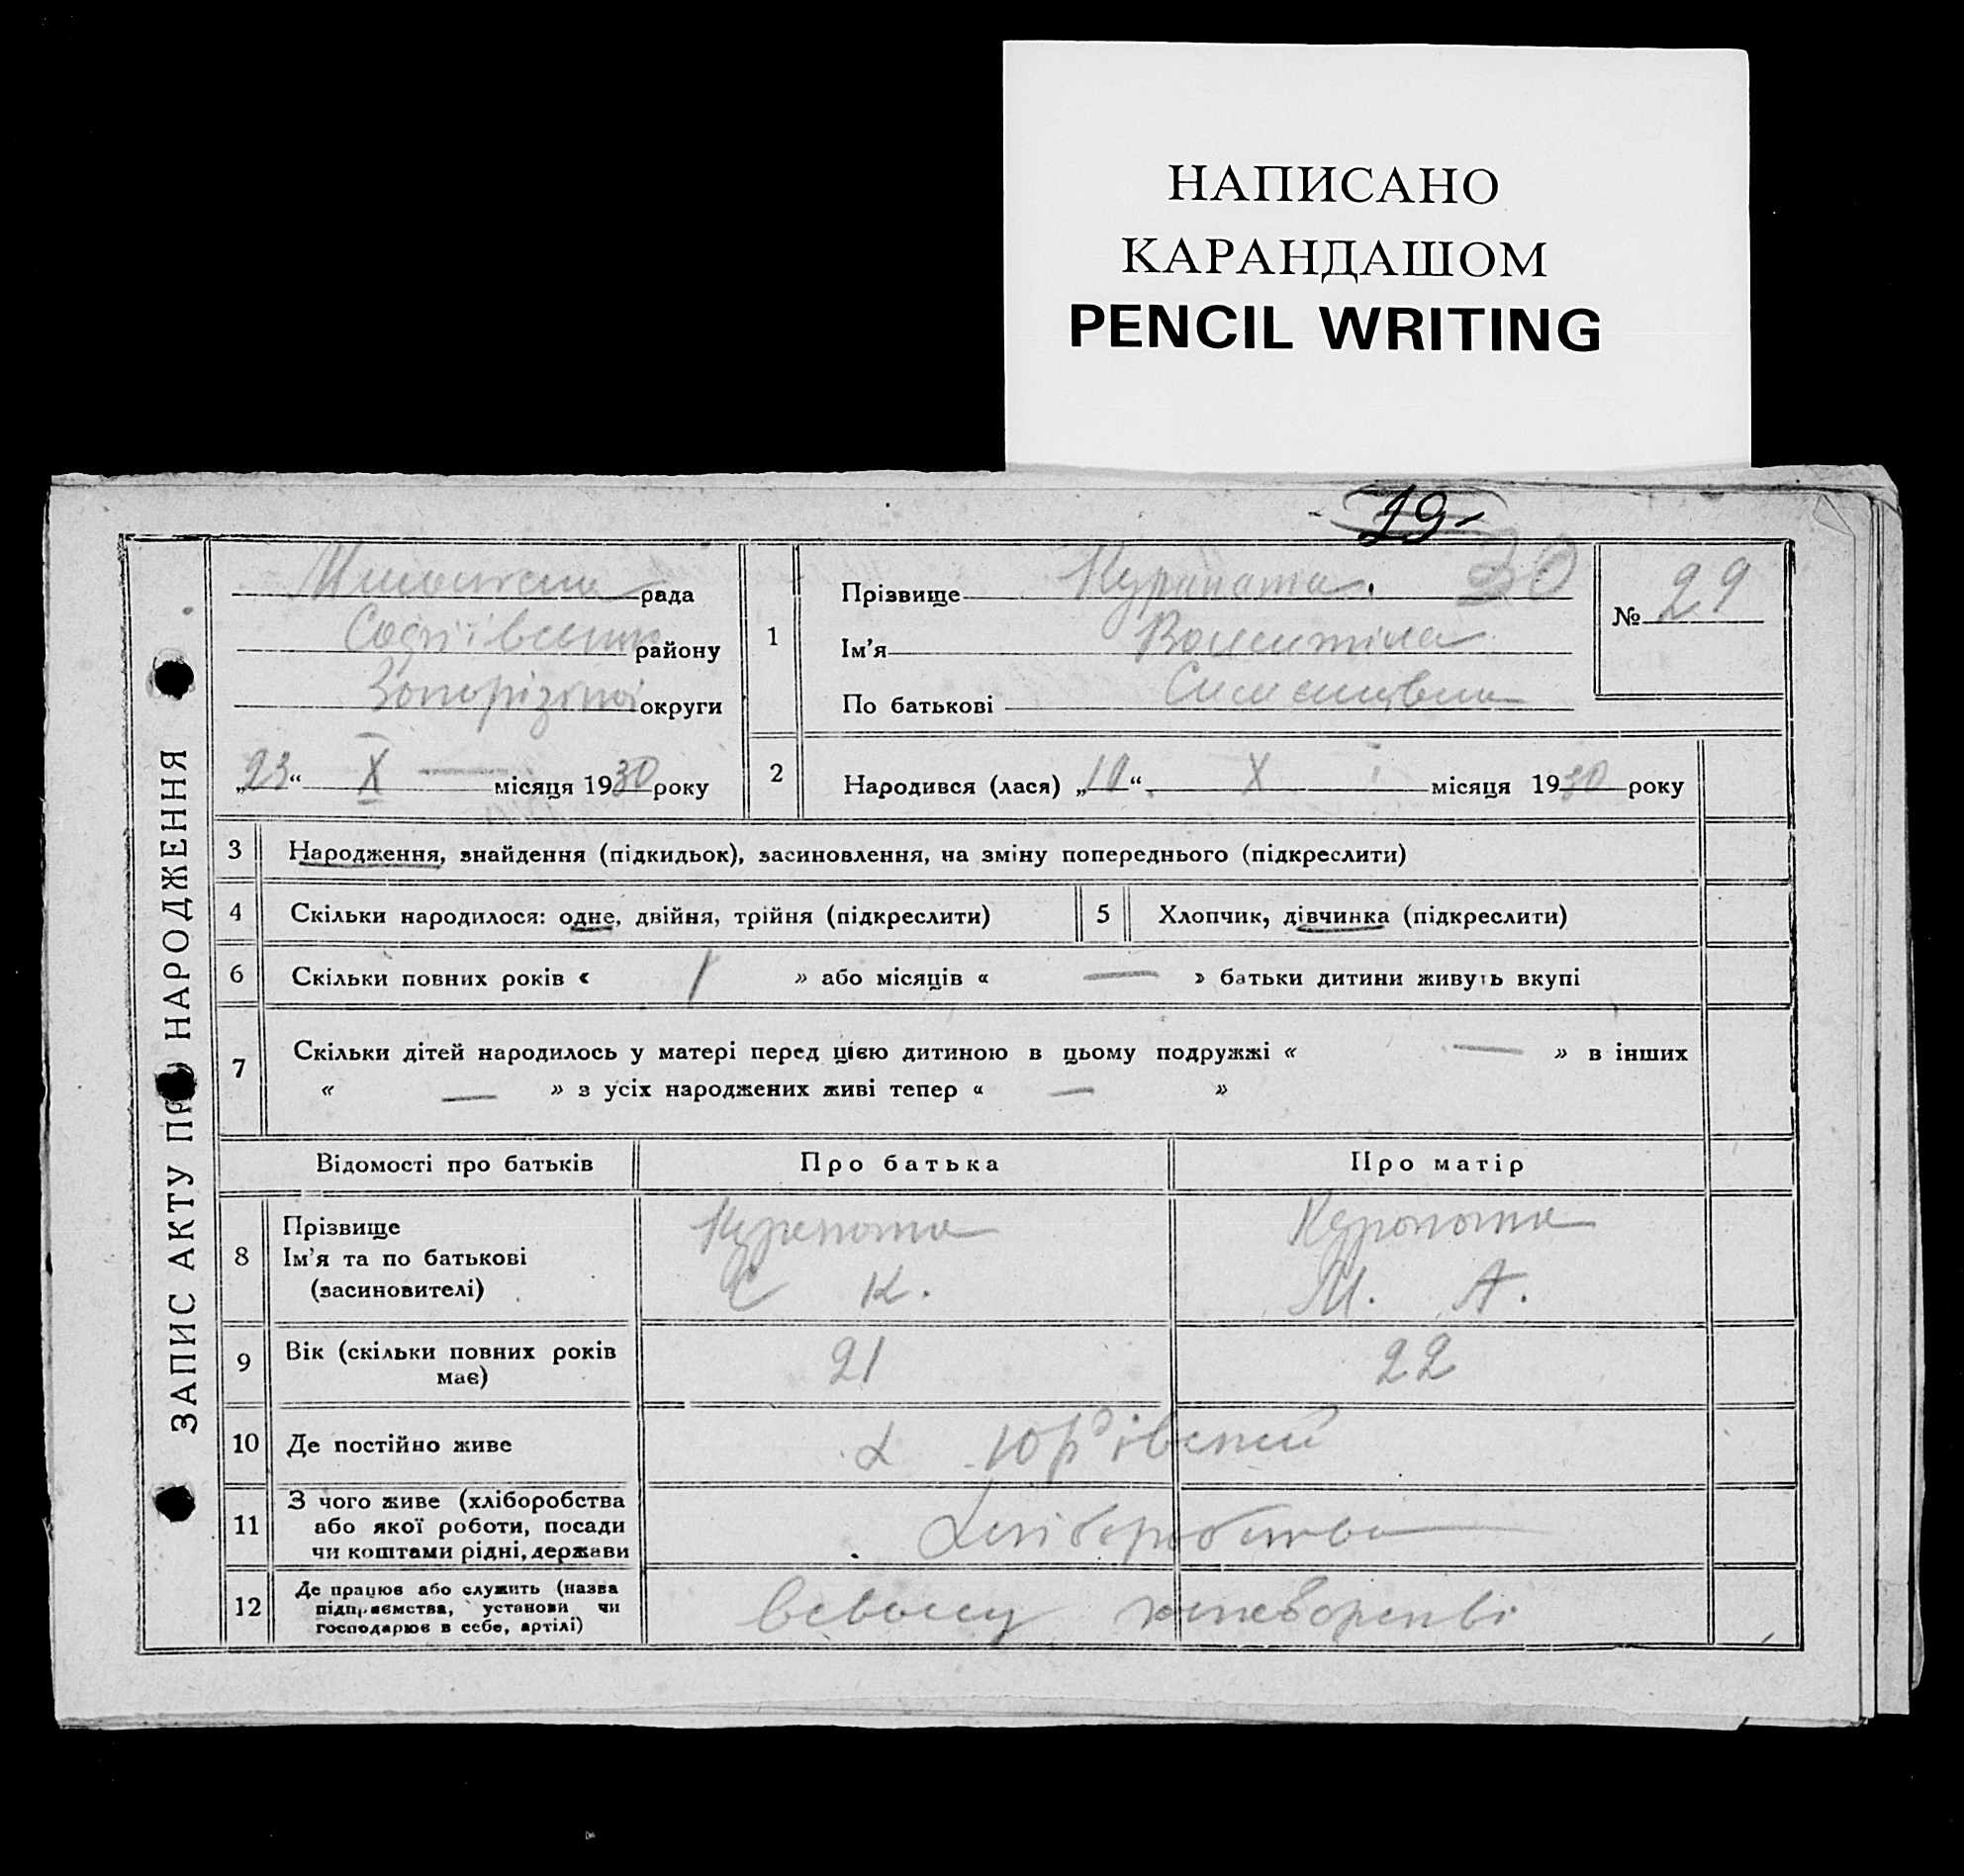 НАПИСАНО
КАРАНДАШОМ
PENCIL WRITING
19
ЗАПИС АКТУ ПРО НАРОДЖЕННЯ
рада
району
округи
„23“ X місяця 1930 року
1
Прізвище Курапата. 30
Ім’я
По батькові
№ 29
2
Народився (лася) „10“ X місяця 1930 року
3 Народження, знайдення (підкидьок), засиновлення, на зміну попереднього (підкреслити)
4 Скільки народилося: одне, двійня, трійня (підкреслити)
5 Хлопчик, дівчинка (підкреслити)
6 Скільки повних років « 1 » або місяців « — » батьки дитини живуть вкупі
7 Скільки дітей народилось у матері перед цією дитиною в цьому подружжі « — » в інших
« — » з усіх народжених живі тепер « — »
Відомості про батьків Про батька Про матір
8 Прізвище
Ім’я та по батькові
(засиновителі)
Курапата
С К.
Курапата
М. А.
9 Вік (скільки повних років
має)
21 22
10 Де постійно живе
11 З чого живе (хліборобства
або якої роботи, посади
чи коштами рідні, держави
Хліборобство
12 Де працює або служить (назва
підприємства, установи чи
господарює в себе, артілі)